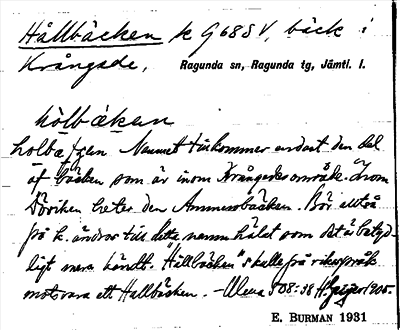 Hållbäcken k G 68 S V, bäck i
Krångede, Ragunda sn, Ragunda tg, Jämtl. l.
hölbäkan
Namnet tillkommer endast den del
af bäcken som är inom Krångedes område. Inom
Döviken heter den Ammersbäcken. Bör alltså
på k. ändras till detta namn hälst som det är betyd-
ligt mera kändt. "Hållbäcken" skulle på riksspråk
motsvara ett Hallbäcken. - Ulena 508:38 H. Geijer 1905.
E. BURMAN 1931